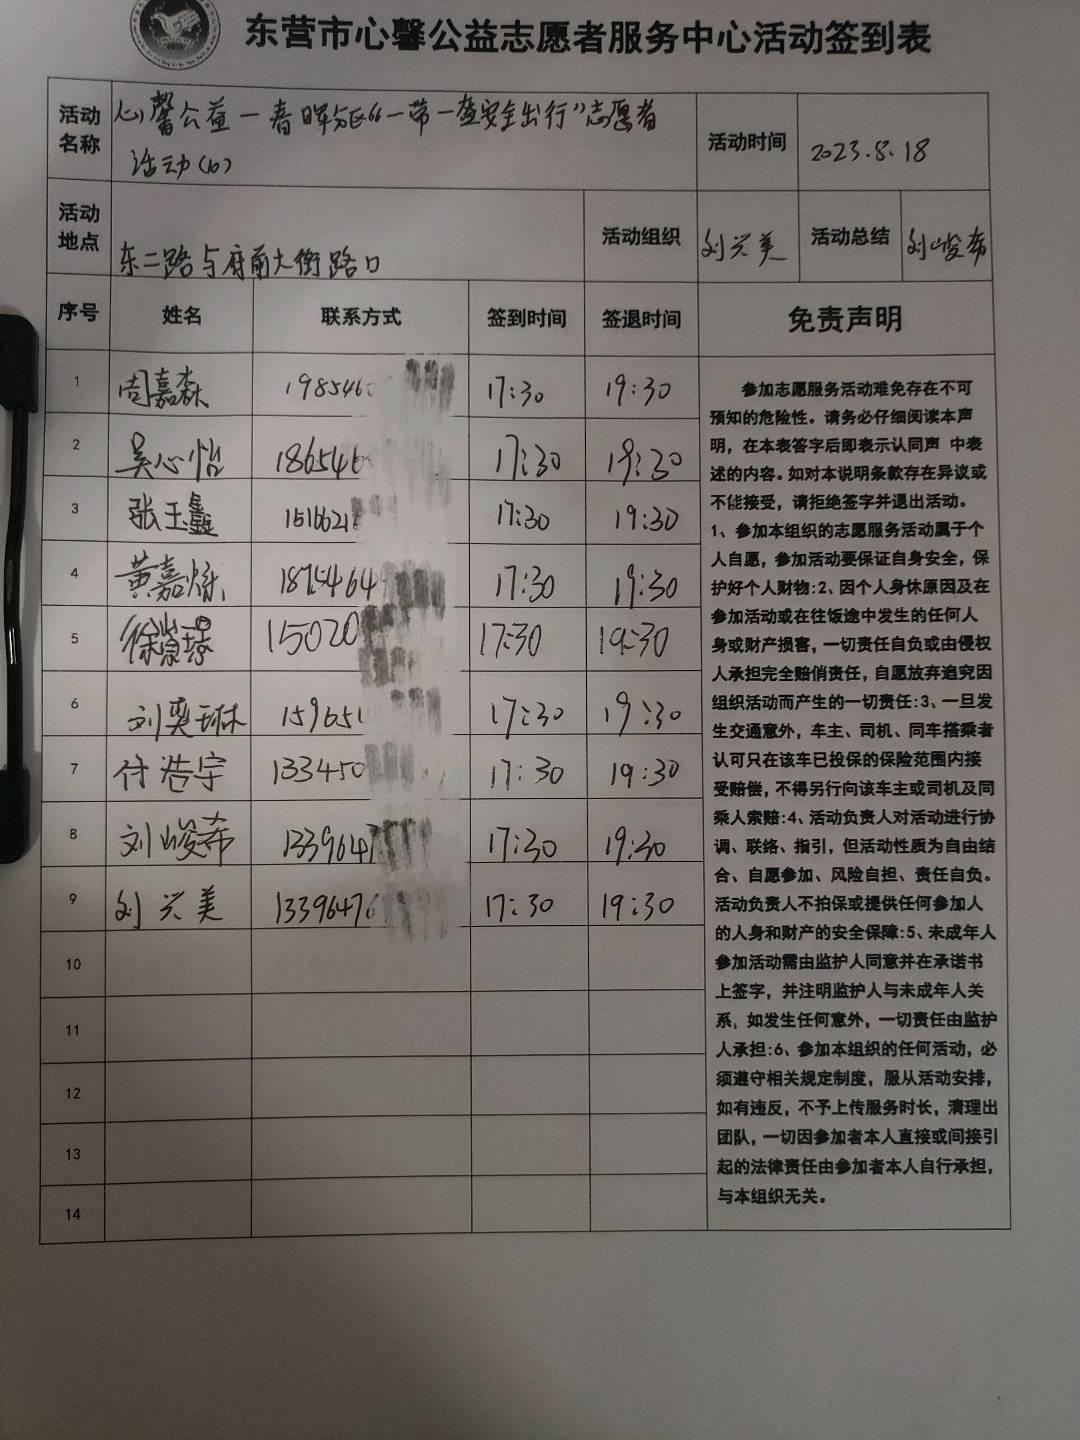 东营市心馨公益志愿者服务中心活动签到表
活动名称 心馨公益一春晖分区“一带一盔安全出行”志愿者活动(10) 活动时间 2023.8.18
活动地点 东二路与府前大街路口 活动组织 刘兴美 活动总结 刘峻希
序号 姓名 联系方式 签到时间 签退时间 免责声明
1 周嘉森 198546 17:30 19:30
2 吴心怡 186546 17:30 19:30
3 张玉鑫 1516621 17:30 19:30
4 黄嘉烁 1875464 17:30 19:30
5 徐 15020 17:30 19:30
6 刘奕琳 159651 17:30 19:30
7 付浩宇 133450 17:30 19:30
8 刘峻希 1339647 17:30 19:30
9 刘兴美 13396476 17:30 19:30
10
11
12
13
14
参加志愿服务活动难免存在不可
预知的危险性。请务必仔细阅读本声
明，在本表签字后即表示认同声 中表
述的内容。如对本说明条款存在异议或
不能接受，请拒绝签字并退出活动。
1、参加本组织的志愿服务活动属于个
人自愿，参加活动要保证自身安全，保
护好个人财物:2、因个人身休原因及在
参加活动或在往饭途中发生的任何人
身或财产损害，一切责任自负或由侵权
人承担完全赔俏责任，自愿放弃追究因
组织活动而产生的一切责任:3、一旦发
生交通意外，车主、司机、同车搭乘者
认可只在该车已投保的保险范围内接
受赔偿，不得另行向该车主或司机及同
乘人索赔:4、活动负责人对活动进行协
调、联络、指引，但活动性质为自由结
合、自愿参加、风险自担、责任自负。
活动负责人不拍保或提供任何参加人
的人身和财产的安全保障:5、未成年人
参加活动需由监护人同意并在承诺书
上签字，并注明监护人与未成年人关
系，如发生任何意外，一切责任由监护
人承担:6、参加本组织的任何活动，必
须遵守相关规定制度，服从活动安排，
如有违反，不予上传服务时长，清理出
团队，一切因参加者本人直接或间接引
起的法律责任由参加者本人自行承担，
与本组织无关。